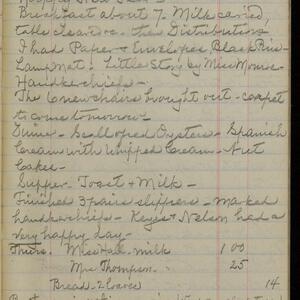 Breakfast about 7. Milk carried,
table cleared - then Distributions
I had Paper & Envelopes, Black Pins -
Lamp Mat. Little Story by Miss Monroe -
Handkerchiefs -
The 6 new chairs brought out - carpet
to come tomorrow -
Dinner - Scalloped Oysters - Spanish
Cream with Whipped Cream - Nut
Cakes -
Supper - Toast & Milk -
Finished 3 pairs slippers - Marked
handkerchiefs - Keyes & Nelson had a
very happy day -
Thurs. Miss Hall - milk 1 00
Mrs Thompson - 25
Bread - 2 loaves 14